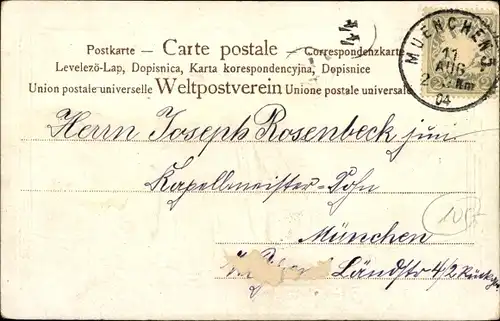 44
Postkarte — Carte postale — Correspondenzkarte
Levelező-Lap, Dopisnica, Karta korespondencyjna, Dopisnice
Union postale universelle Weltpostverein Unione postale universale
MUENCHEN 3.
11
AUG
04
Herrn Joseph Rosenbeck jun.
Kapellmeister-Sohn
München
Ländstr 4/2 Rückg.